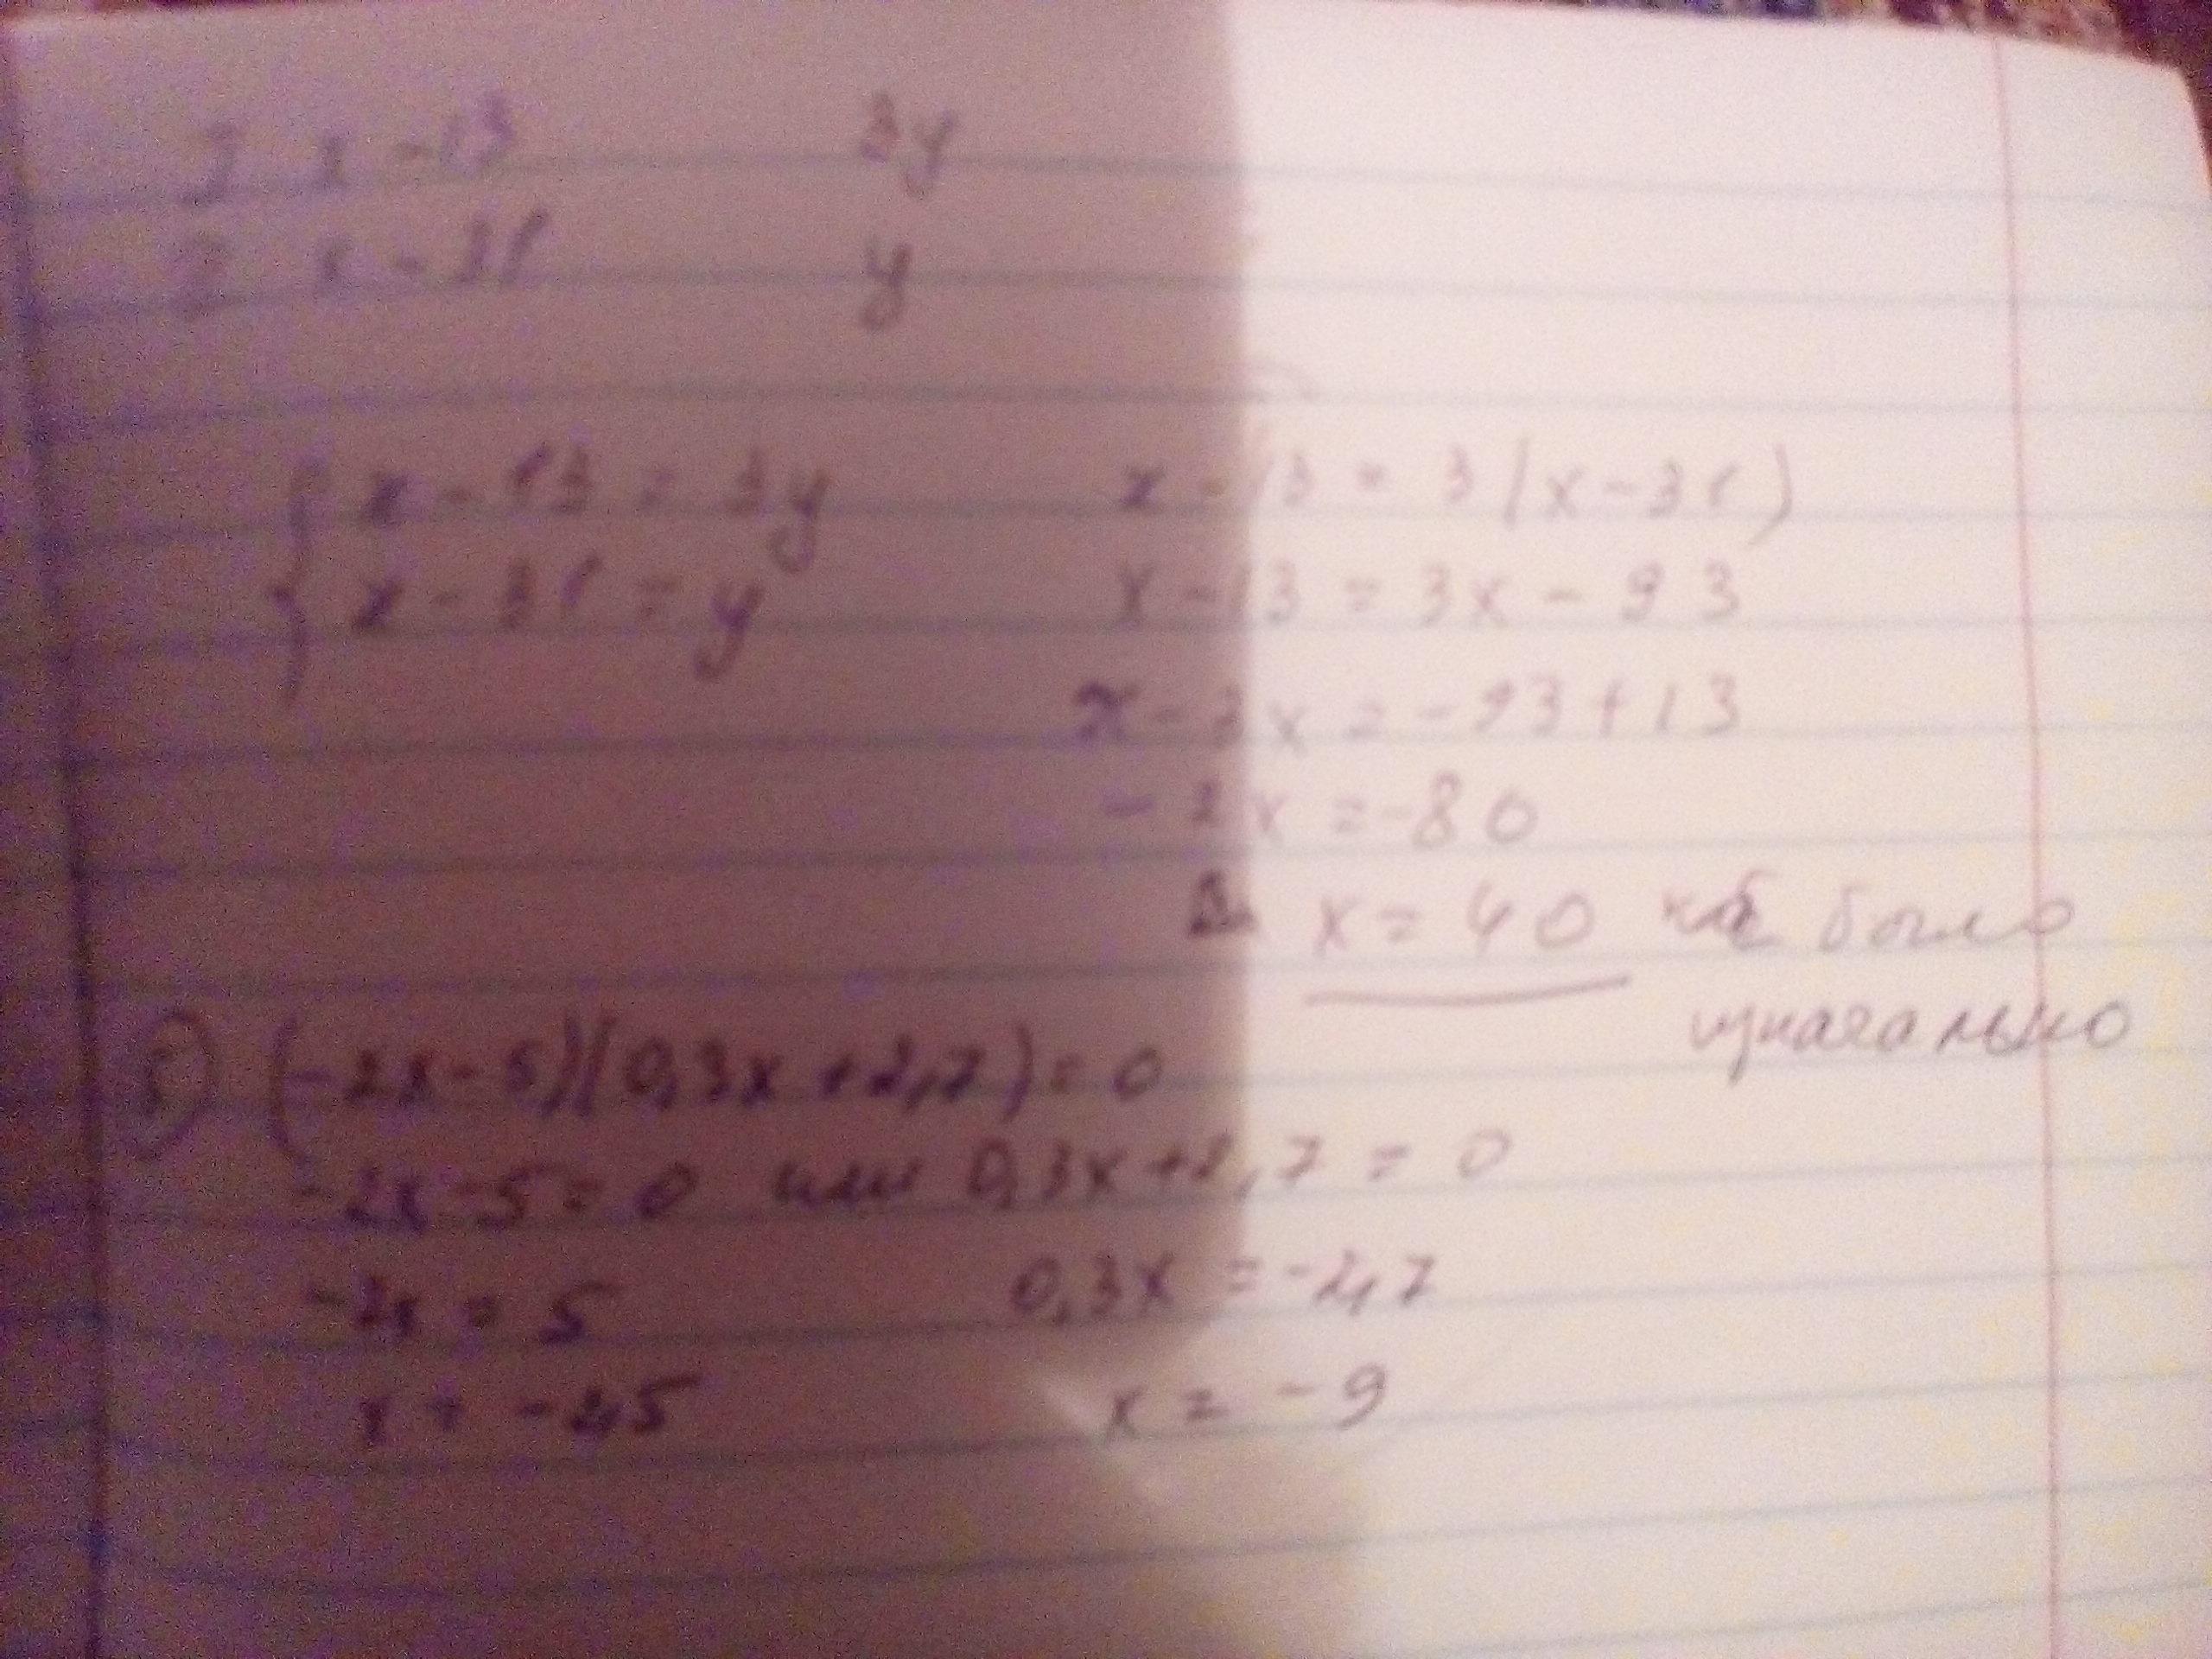 I x - 13 3y
II x - 31 y
x - 13 = 3y x - 13 = 3(x - 31)
x - 31 = y x - 13 = 3x - 93
x - 3x = -93 + 13
- 2x = -80
x = 40 было
изначально
(-2x - 5)(0,3x + 2,7) = 0
-2x - 5 = 0 или 0,3x + 2,7 = 0
-2x = 5 0,3x = -2,7
x = -2,5 x = -9